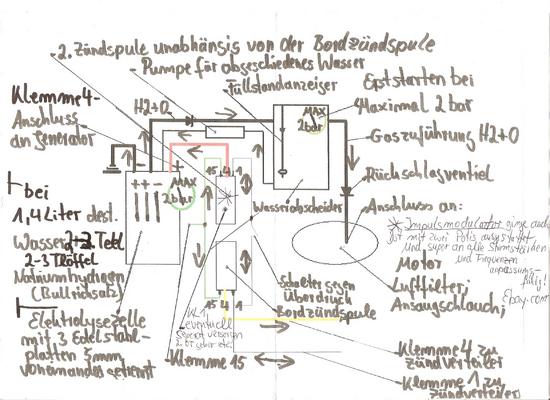 - 2. Zündspule unabhängig von der Bordzündspule
- Pumpe für abgeschiedenes Wasser
Füllstandanzeiger
Klemme 4-
Anschluss
an Generator
H2+O
MAX
2bar
Erststarten bei
Maximal 2 bar
Gaszuführung H2+O
Rückschlagventil
Anschluss an:
+ + -
+
MAX
2bar
15 4 1
Wasserabscheider
bei
1,4 Liter dest.
Wasser
2-3 Tröffel
(Bullrichsalz)
Elektrolysezelle
mit 3 Edelstahl-
platten 5mm
voneinander getrennt
Impulsmodulator ginge auch
ist mit zwei Potis ausgestattet
und super an alle Stromstärken
und Frequenzen
anpassungs-
fähig!
Ebay.com
Motor
Luftfilter:
Ansaugschlauch;
Schalter gegen
Überdruck
Bordzündspule
15 4 1
KL 1
eventuell
Klemme 15
Klemme 4 zu
Zündverteiler
Klemme 1 zu
Zündverteiler